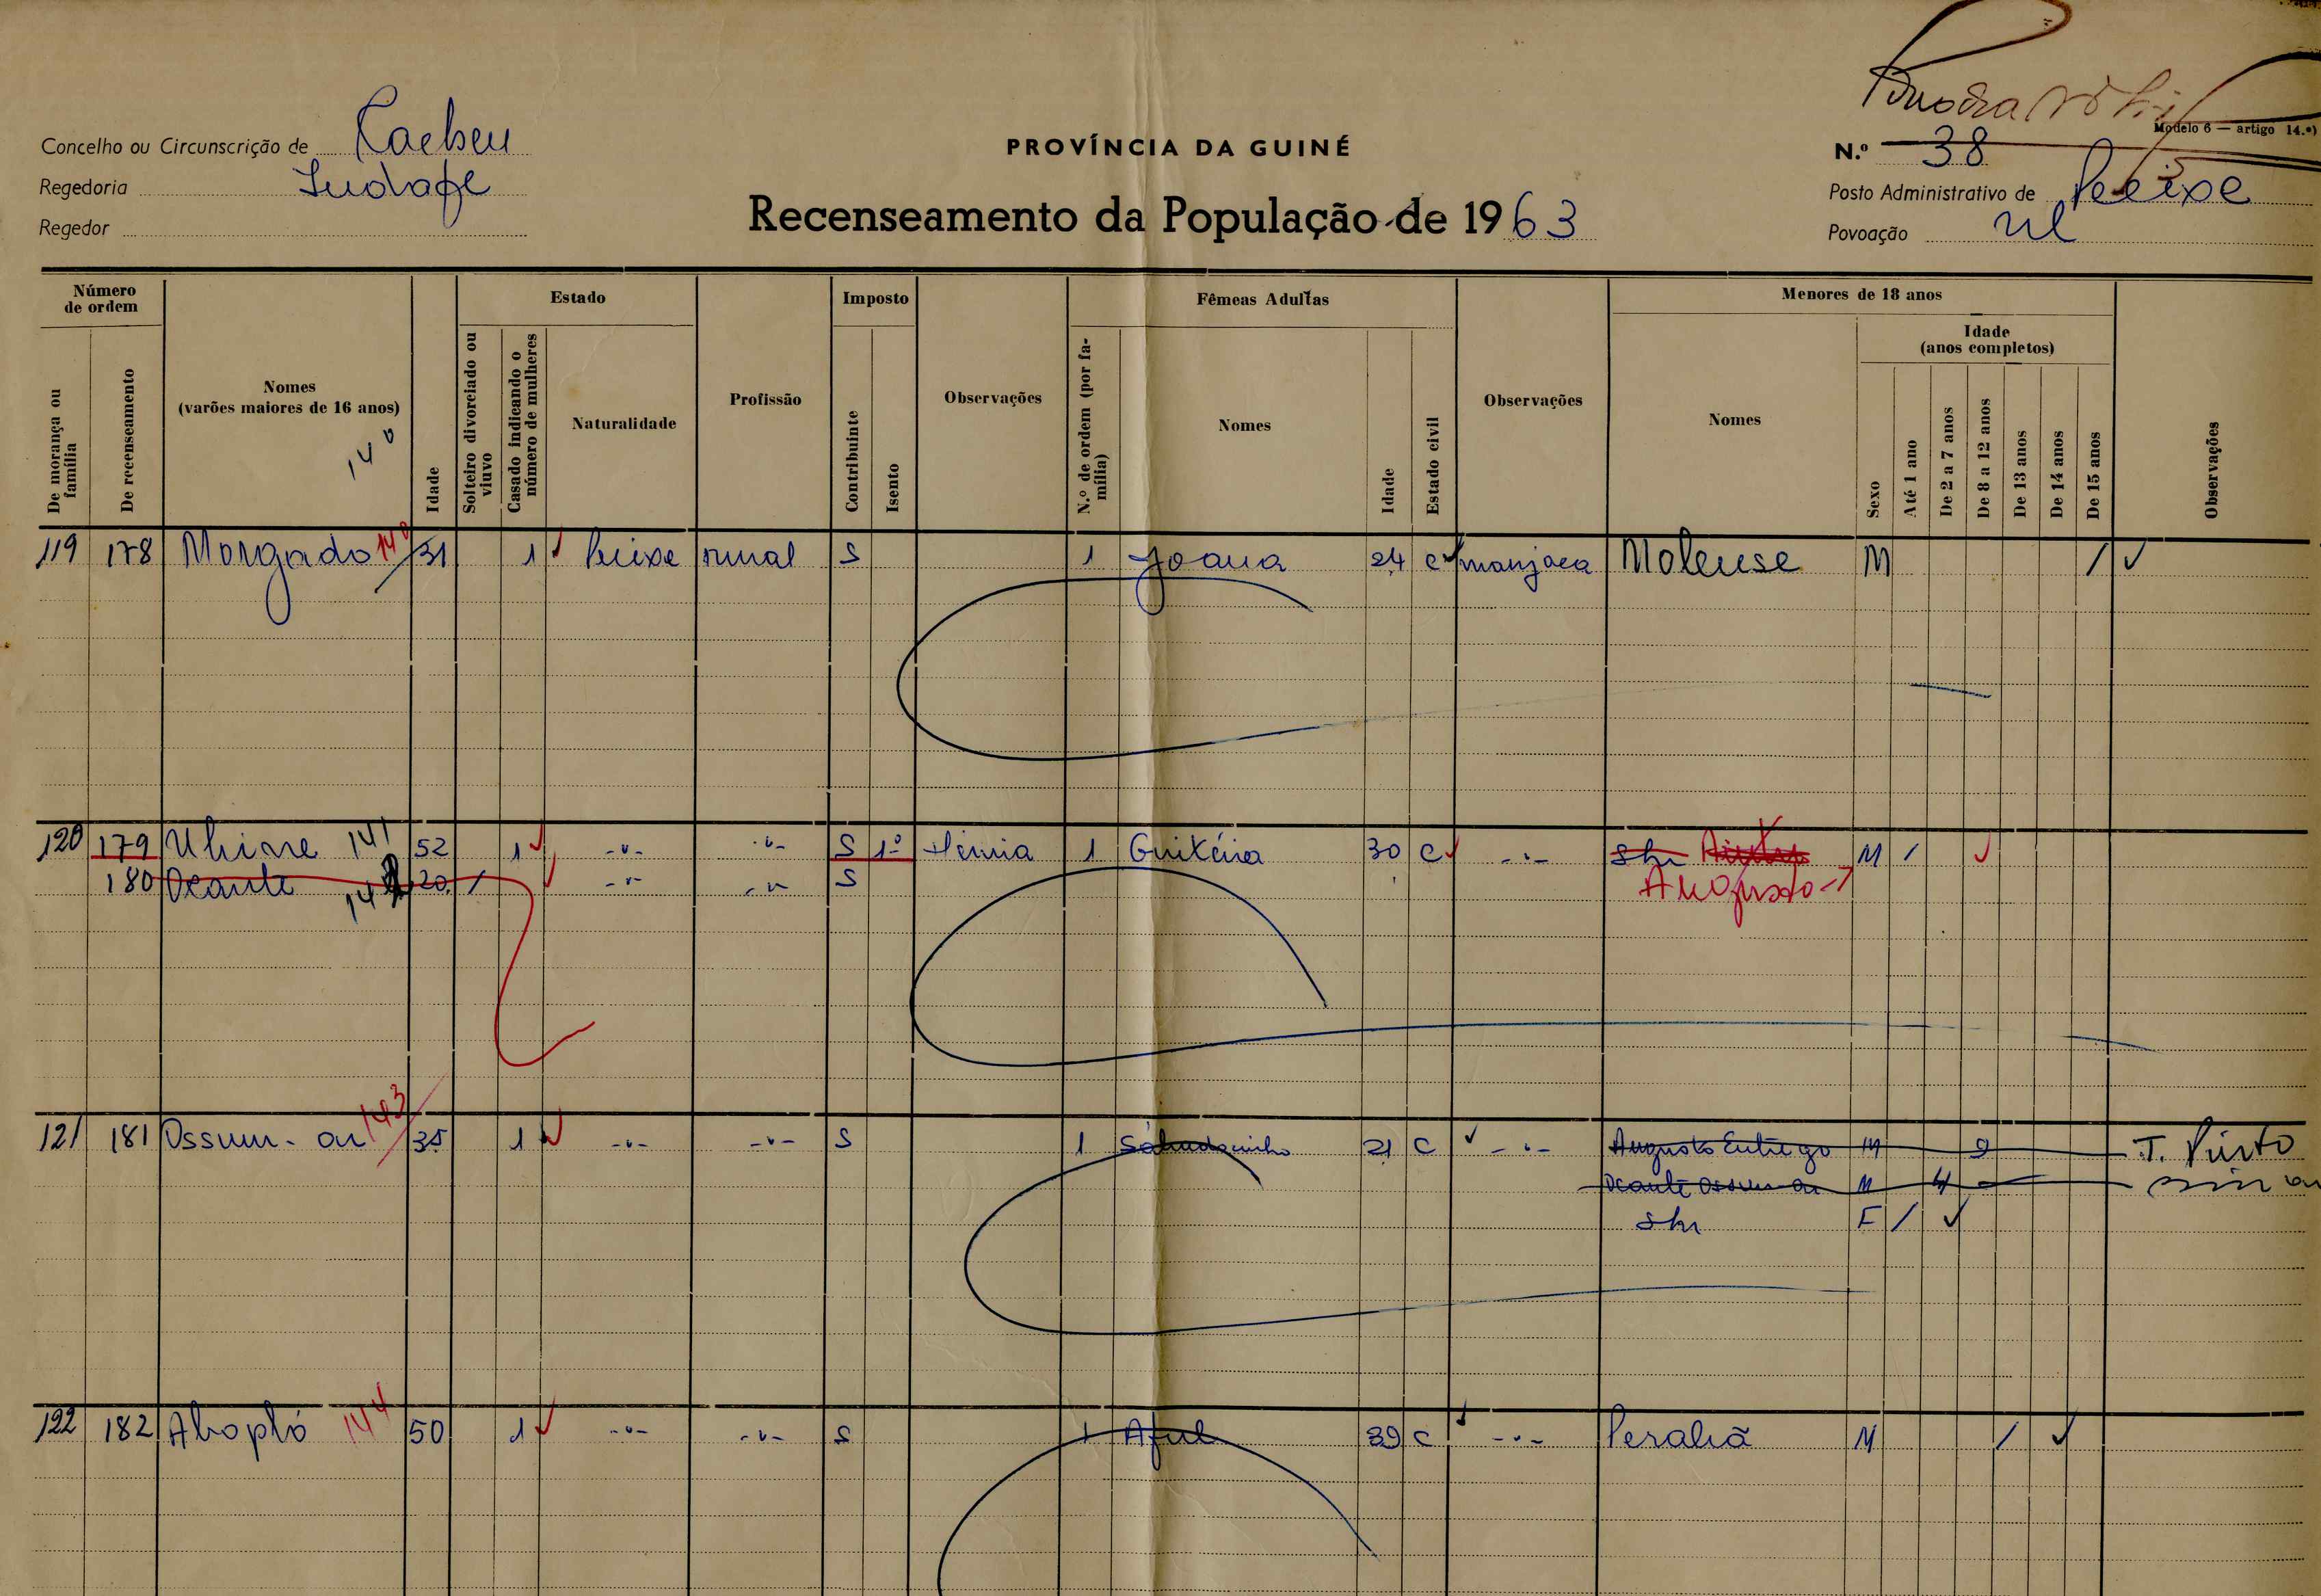 Modelo 6 — artigo 14.º)
Concelho ou Circunscrição de Cacheu
PROVÍNCIA DA GUINÉ
N.º 38
Regedoria
Posto Administrativo de Peeixe
Recenseamento da População de 1963
Regedor
Povoação
Número de ordem
Estado
Imposto
Fêmeas Adultas
Menores de 18 anos
De morança ou família
De recenseamento
Nomes
(varões maiores de 16 anos)
14º
Idade
Solteiro divorciado ou viuvo
Casado indicando o número de mulheres
Naturalidade
Profissão
Contribuinte
Isento
Observações
N.º de ordem (por família)
Nomes
Idade
Estado civil
Observações
Nomes
Sexo
Idade
(anos completos)
Até 1 ano
De 2 a 7 anos
De 8 a 12 anos
De 13 anos
De 14 anos
De 15 anos
Observações
119 178 Morgado 140 31 1 Peixe rural S 1 Joana 24 C manjaca M /
120 179 141 52 1 -"- -"- S 1º Hérnia 1 30 C -"- M /
180 Ocante 142 20 / -"- -"- S Augusto
121 181 Ossum-ou 143 35 1 -"- -"- S 1 21 C -"- Augusto Entrego M 9 T. Pinto
Ocante Ossum-ou M 4
F /
122 182 144 50 1 -"- -"- S 1 Aful 39 C -"- M /